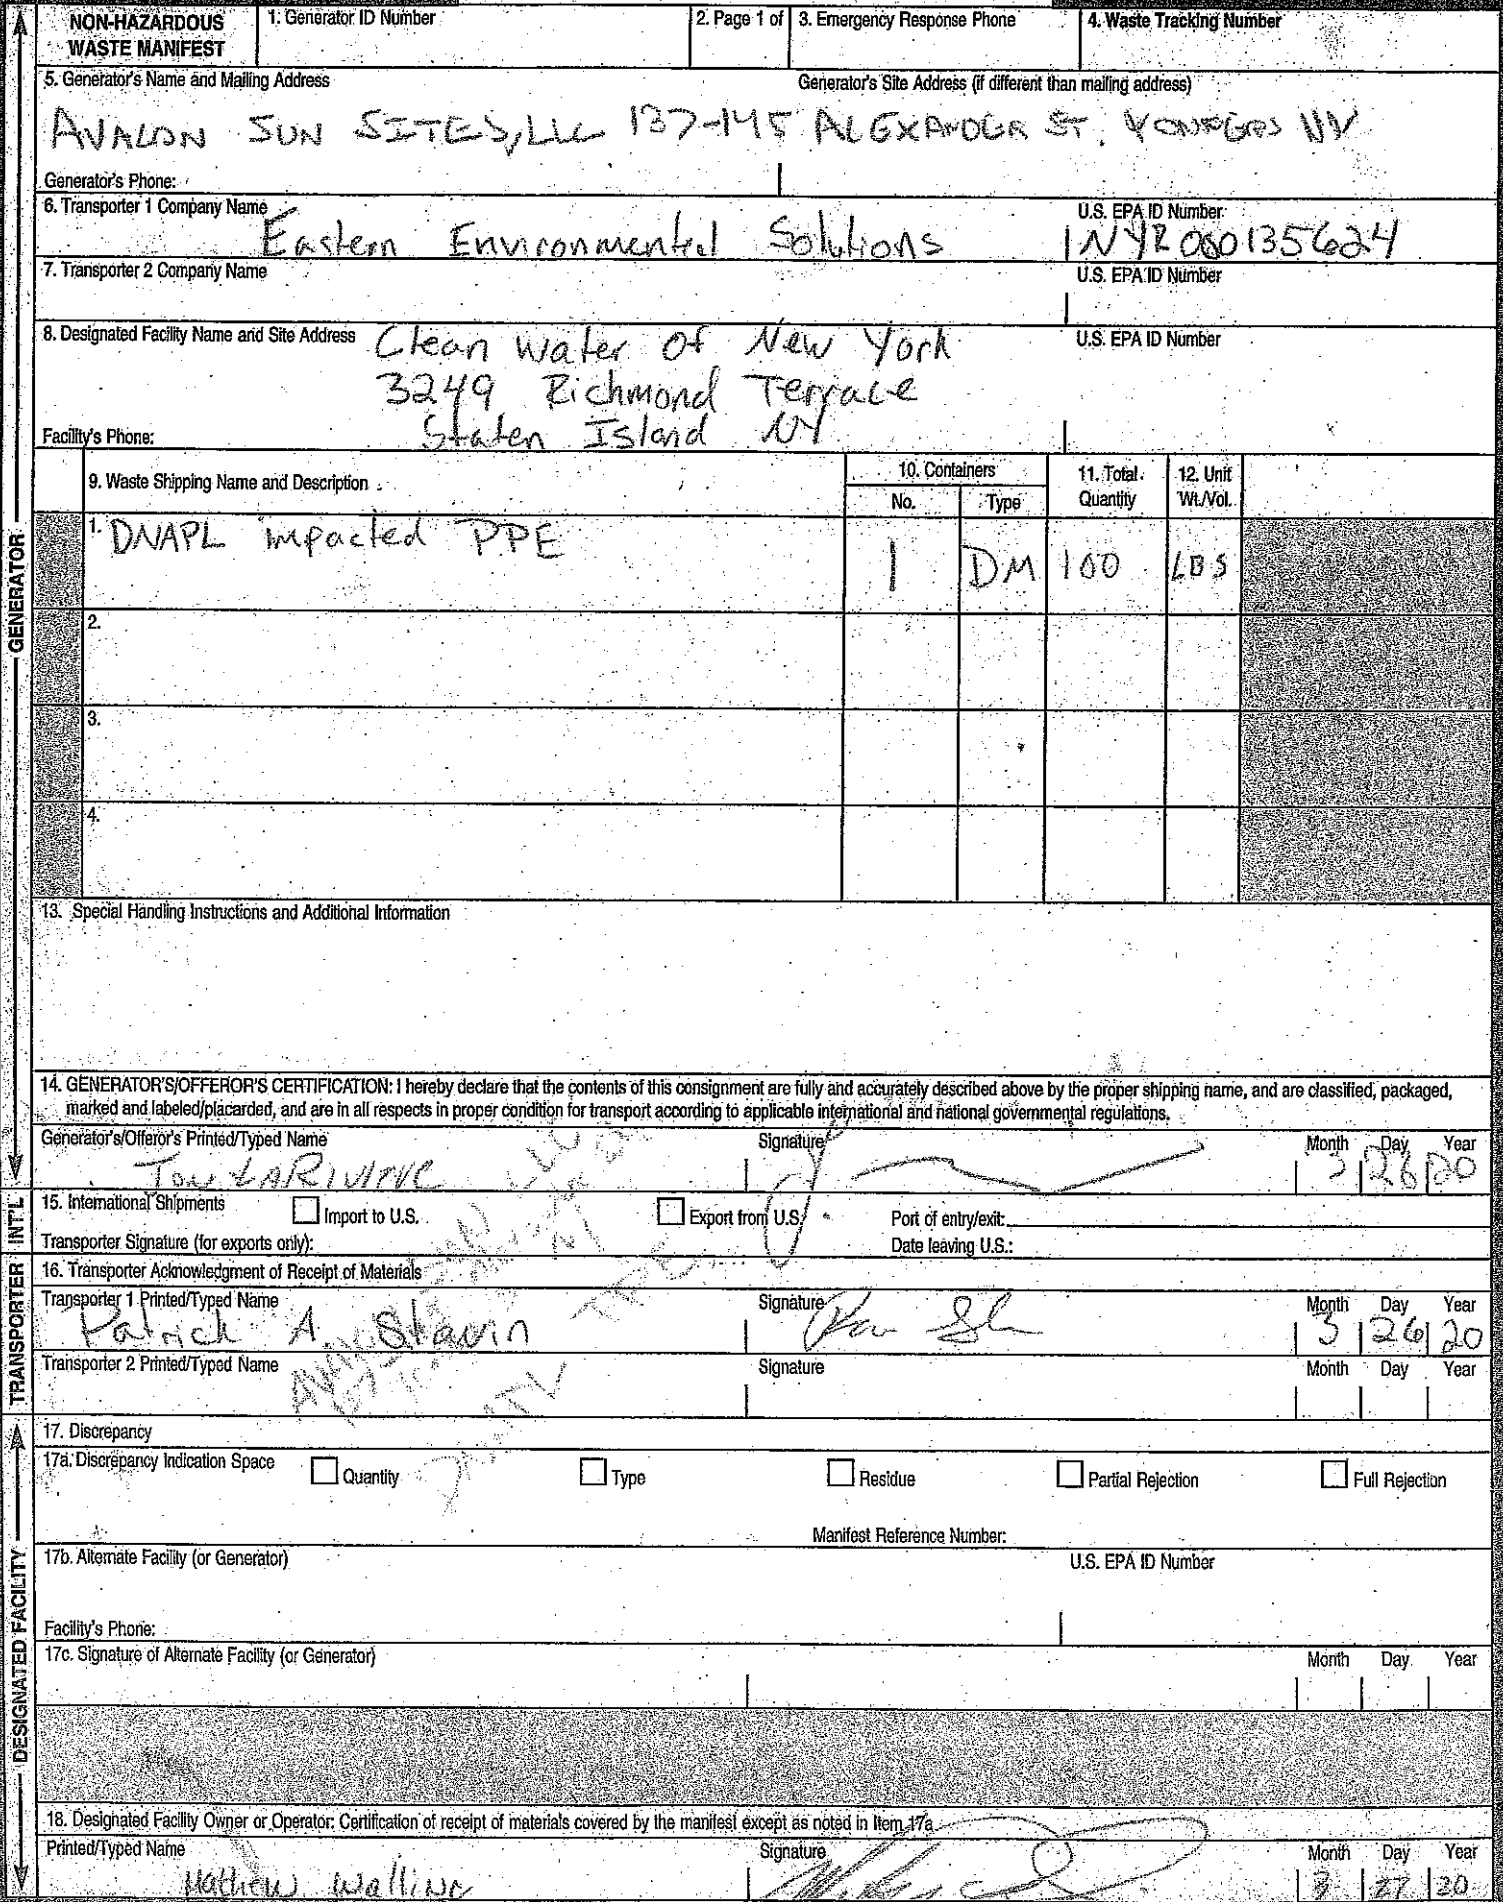 NON-HAZARDOUS WASTE MANIFEST
1. Generator ID Number
2. Page 1 of
3. Emergency Response Phone
4. Waste Tracking Number
5. Generator's Name and Mailing Address
Generator's Site Address (if different than mailing address)
AVALON SUN SITES, LLC 137-145 ALEXANDER ST. YONKERS NY
Generator's Phone:
6. Transporter 1 Company Name
U.S. EPA ID Number
Eastern Environmental Solutions
NYR000135624
7. Transporter 2 Company Name
U.S. EPA ID Number
8. Designated Facility Name and Site Address
U.S. EPA ID Number
Clean Water of New York
3249 Richmond Terrace
Staten Island NY
Facility's Phone:
9. Waste Shipping Name and Description
10. Containers
No.
Type
11. Total Quantity
12. Unit Wt./Vol.
1. DNAPL impacted PPE
1 DM 100 LBS
2.
3.
4.
13. Special Handling Instructions and Additional Information
14. GENERATOR'S/OFFEROR'S CERTIFICATION: I hereby declare that the contents of this consignment are fully and accurately described above by the proper shipping name, and are classified, packaged,
marked and labeled/placarded, and are in all respects in proper condition for transport according to applicable international and national governmental regulations.
Generator's/Offeror's Printed/Typed Name
Signature
Month Day Year
3 26 20
15. International Shipments
Import to U.S.
Export from U.S.
Port of entry/exit:
Transporter Signature (for exports only):
Date leaving U.S.:
16. Transporter Acknowledgment of Receipt of Materials
Transporter 1 Printed/Typed Name
Signature
Month Day Year
Patrick A. Slavin
3 26 20
Transporter 2 Printed/Typed Name
Signature
Month Day Year
17. Discrepancy
17a. Discrepancy Indication Space
Quantity
Type
Residue
Partial Rejection
Full Rejection
Manifest Reference Number:
17b. Alternate Facility (or Generator)
U.S. EPA ID Number
Facility's Phone:
17c. Signature of Alternate Facility (or Generator)
Month Day Year
18. Designated Facility Owner or Operator: Certification of receipt of materials covered by the manifest except as noted in Item 17a
Printed/Typed Name
Signature
Month Day Year
Mathew Walling
3 27 20
GENERATOR
INT'L
TRANSPORTER
DESIGNATED FACILITY